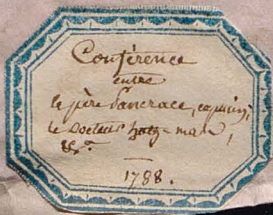 Conférence
entre
le père Pancrace, capucin,
le Docteur hotz-man,
&c.ª
1788.